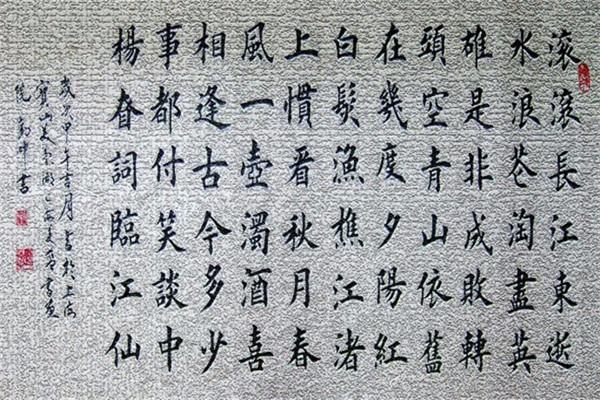 滚滚長江東逝
水浪花淘盡英
雄是非成敗轉
頭空青山依舊
在幾度夕陽紅
白髮漁樵江渚
上慣看秋月春
風一壺濁酒喜
相逢古今多少
事都付笑談中
楊昚詞臨江仙
歲次甲午吉月書於上海
寶山美蘭湖
坤書